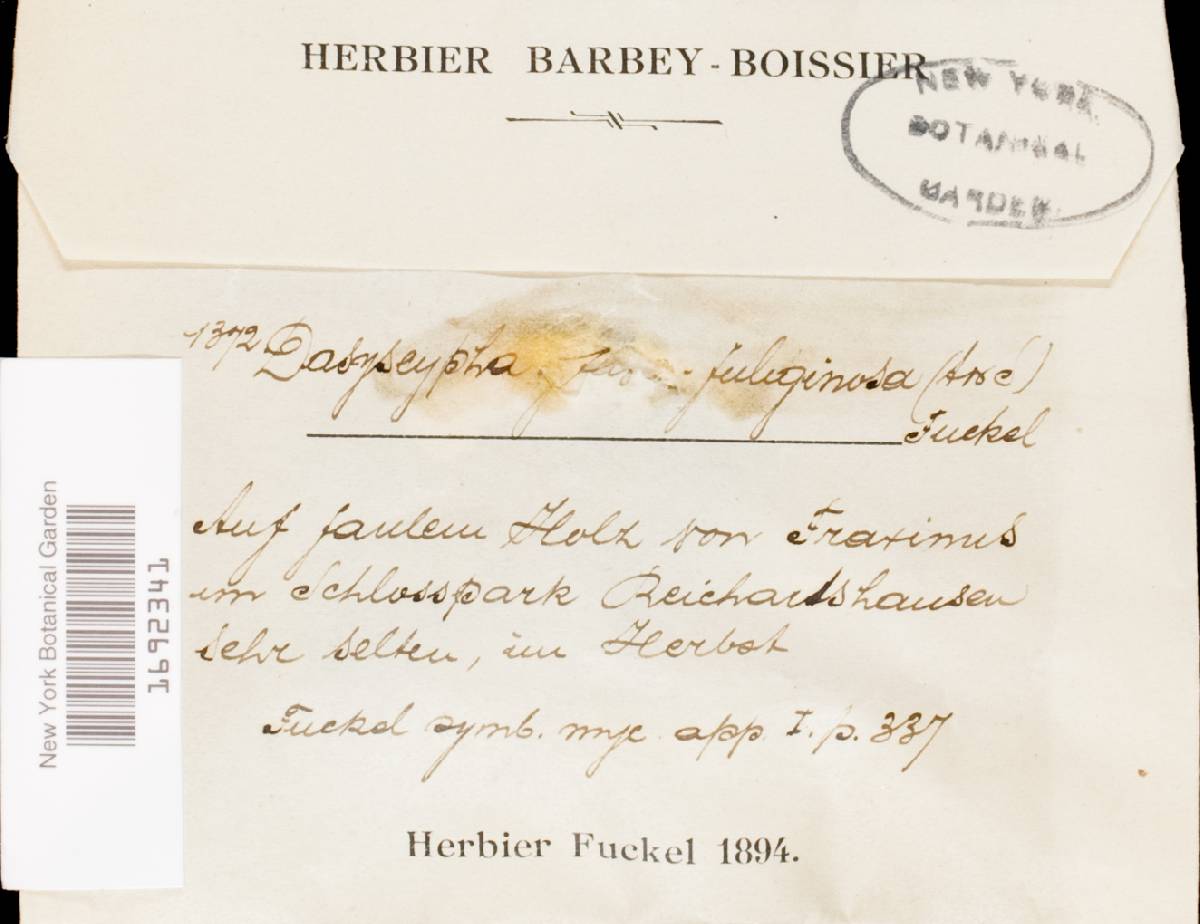 HERBIER BARBEY-BOISSIER
NEW YORK
BOTANICAL
GARDEN
1372 Dasyscypha fuliginosa
Fuckel
Auf faulem Holz von Fraxinus
im Schlosspark Reichartshausen
sehr selten, im Herbst
Fuckel symb. myc. app. I. p. 337
Herbier Fuckel 1894.
New York Botanical Garden
1692341